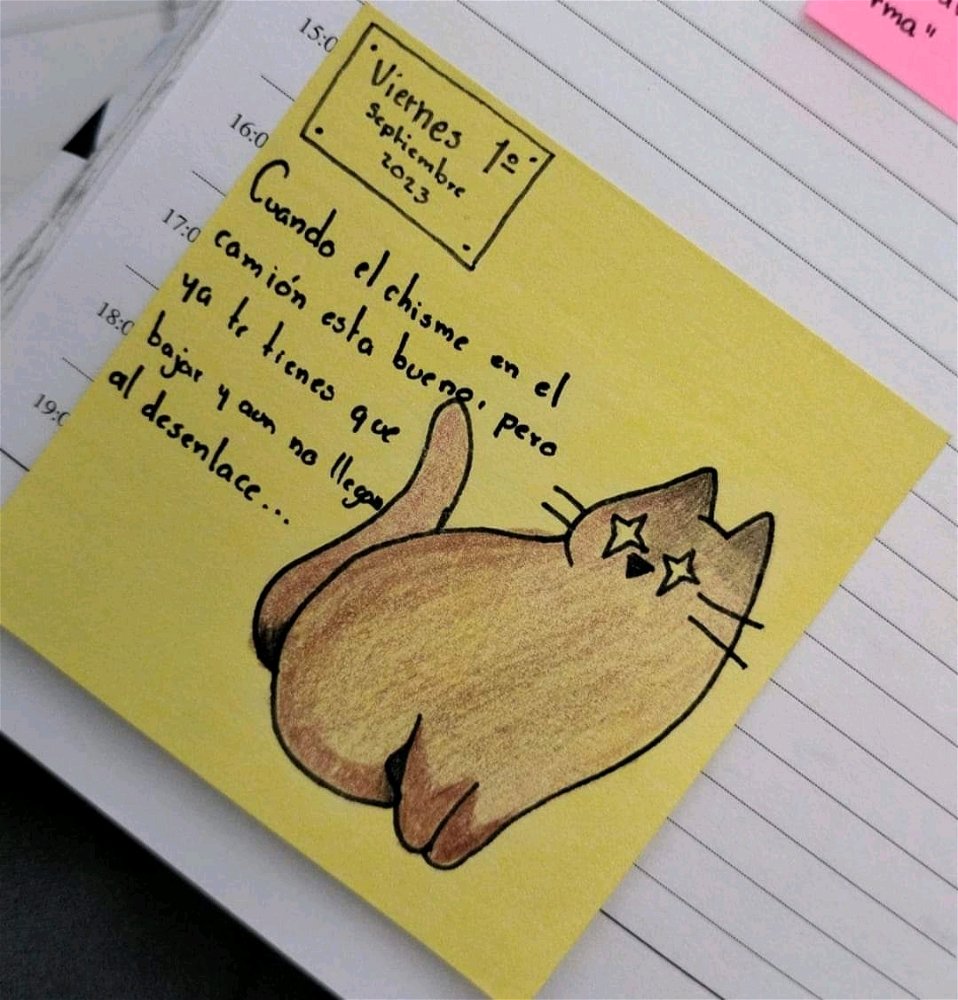 rma"
15:0
16:0
17:0
18:0
19:0
Viernes 1º
Septiembre
2023
Cuando el chisme en el
camión esta bueno, pero
ya te tienes que
bajar y aun no llegan
al desenlace...